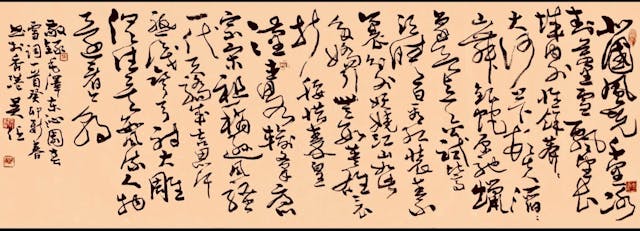 北國風光千里冰
封萬里雪飄望長
城內外惟餘莽莽
大河上下頓失滔滔
山舞銀蛇原馳蠟
象欲與天公試比高
須晴日看紅裝素
裹分外妖嬈江山如此
多嬌引無數英雄競
折腰惜秦皇
漢武略輸文采唐
宗宋祖稍遜風騷
一代天驕成吉思汗
只識彎弓射大雕
俱往矣數風流人物
還看今朝
敬錄毛澤東沁園春
雪詞一首癸卯新春
於香港